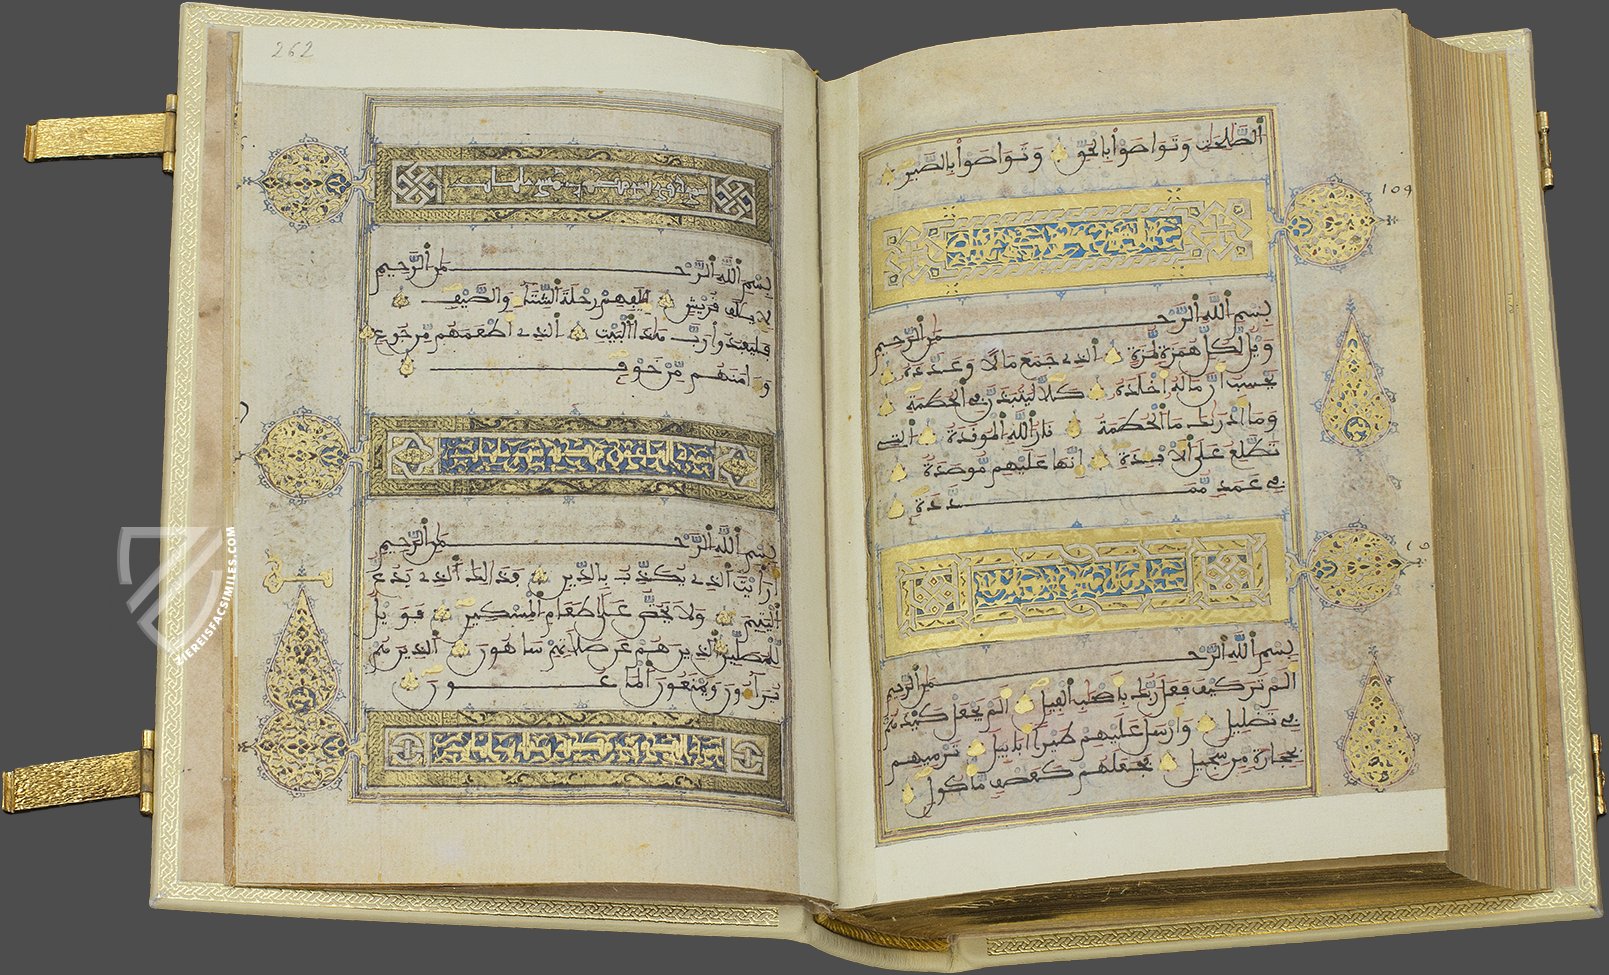 الصَّلِحَاتِ وَتَوَاصَوْا بِالْحَقِّ وَتَوَاصَوْا بِالصَّبْرِ
109
بِسْمِ اللَّهِ الرَّحْمَنِ الرَّحِيمِ
وَيْلٌ لِّكُلِّ هُمَزَةٍ لُّمَزَةٍ الَّذِي جَمَعَ مَالًا وَعَدَّدَهُ
يَحْسِبُ أَنَّ مَالَهُ أَخْلَدَهُ كَلَّا لَيُنبَذَنَّ فِي الْحُطَمَةِ
وَمَا أَدْرَيكَ مَا الْحُطَمَةُ نَارُ اللَّهِ الْمُوقَدَةُ الَّتِي
تَطَّلِعُ عَلَى الْأَفْئِدَةِ إِنَّهَا عَلَيْهِم مُّوصَدَةٌ
فِي عَمَدٍ مُّمَدَّدَةٍ
بِسْمِ اللَّهِ الرَّحْمَنِ الرَّحِيمِ
أَلَمْ تَرَ كَيْفَ فَعَلَ رَبُّكَ بِأَصْحَبِ الْفِيلِ أَلَمْ يَجْعَلْ كَيْدَهُمْ
فِي تَضْلِيلٍ وَأَرْسَلَ عَلَيْهِمْ طَيْرًا أَبَابِيلَ تَرْمِيهِم
بِحِجَارَةٍ مِّن سِجِّيلٍ فَجَعَلَهُمْ كَعَصْفٍ مَّأْكُولٍ
262
بِسْمِ اللَّهِ الرَّحْمَنِ الرَّحِيمِ
لِإِيلَفِ قُرَيْشٍ إِيلَفِهِمْ رِحْلَةَ الشِّتَاءِ وَالصَّيْفِ
فَلْيَعْبُدُوا رَبَّ هَذَا الْبَيْتِ الَّذِي أَطْعَمَهُم مِّن جُوعٍ
وَءَامَنَهُم مِّنْ خَوْفٍ
بِسْمِ اللَّهِ الرَّحْمَنِ الرَّحِيمِ
أَرَأَيْتَ الَّذِي يُكَذِّبُ بِالدِّينِ فَذَلِكَ الَّذِي يَدُعُّ
الْيَتِيمَ وَلَا يَحُضُّ عَلَى طَعَامِ الْمِسْكِينِ فَوَيْلٌ
لِّلْمُصَلِّينَ الَّذِينَ هُمْ عَن صَلَاتِهِمْ سَاهُونَ الَّذِينَ هُمْ
يُرَاءُونَ وَيَمْنَعُونَ الْمَاعُونَ
ZIEREISFACSIMILES.COM